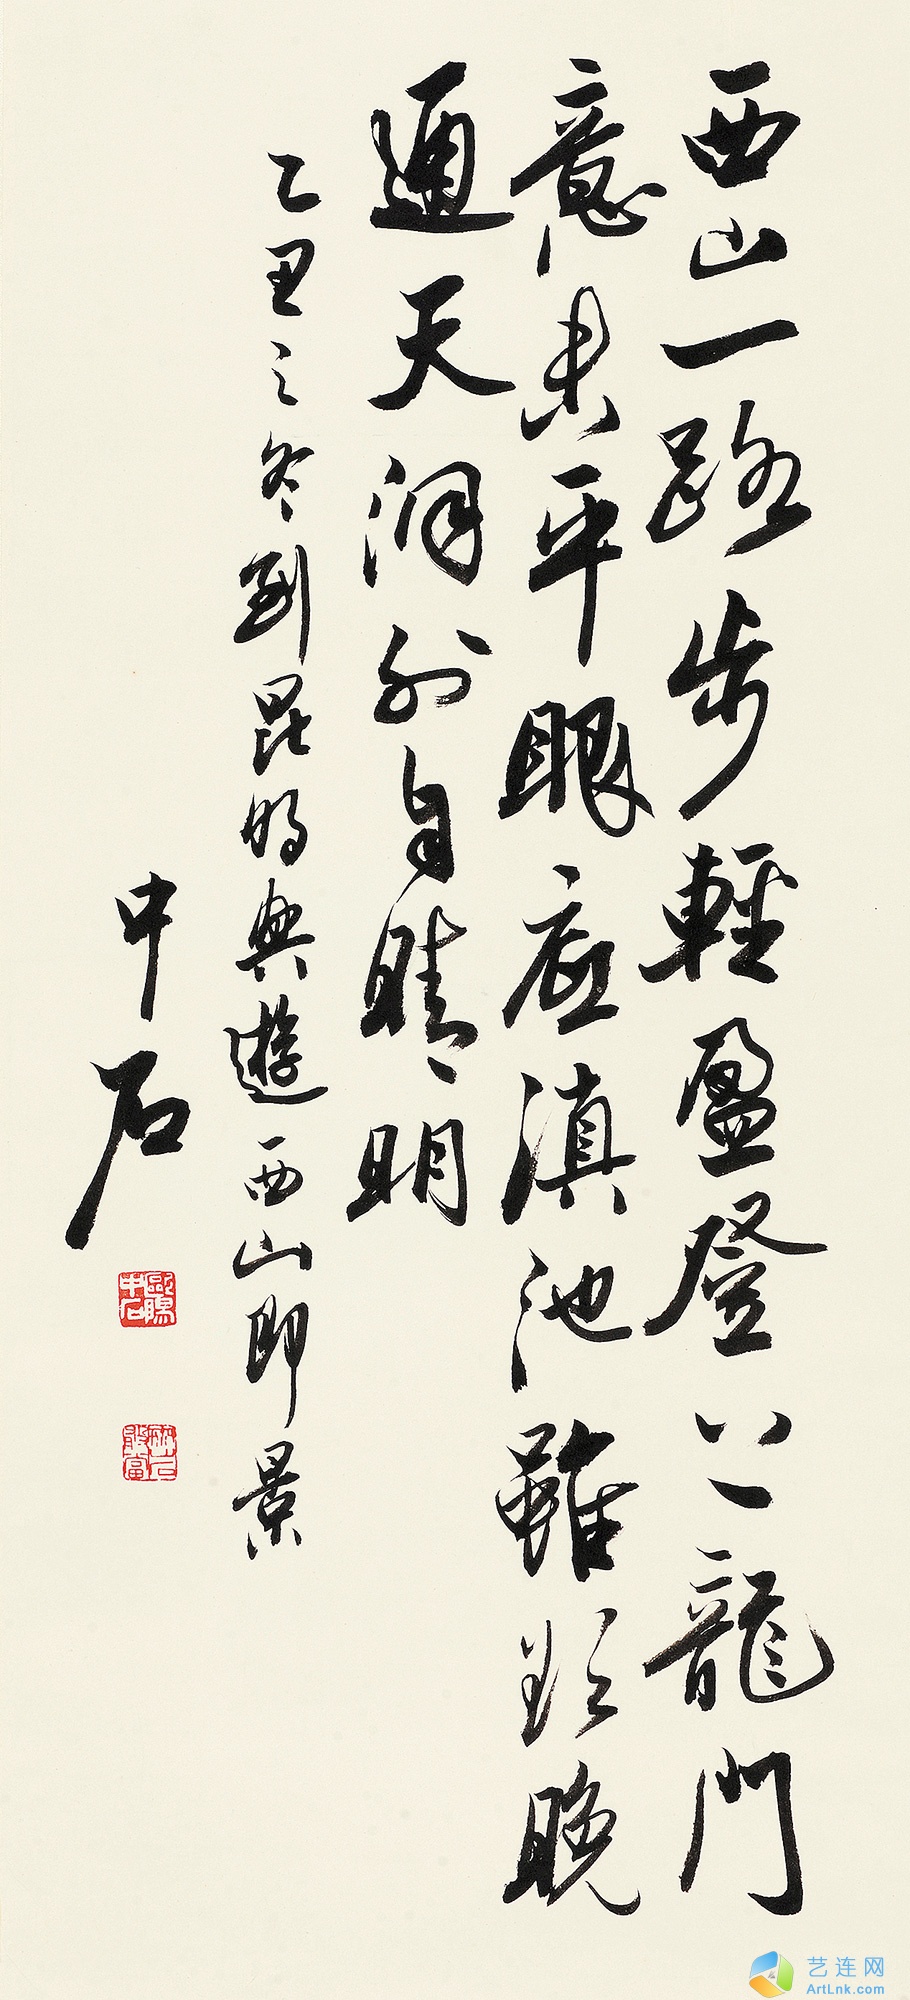 西山一路步輕盈登上龍門
意未平眼底滇池雖欲晚
通天洞外自晴明
乙丑之冬到昆明與遊西山即景
中石
歐陽中石
艺连网
ArtLnk.com